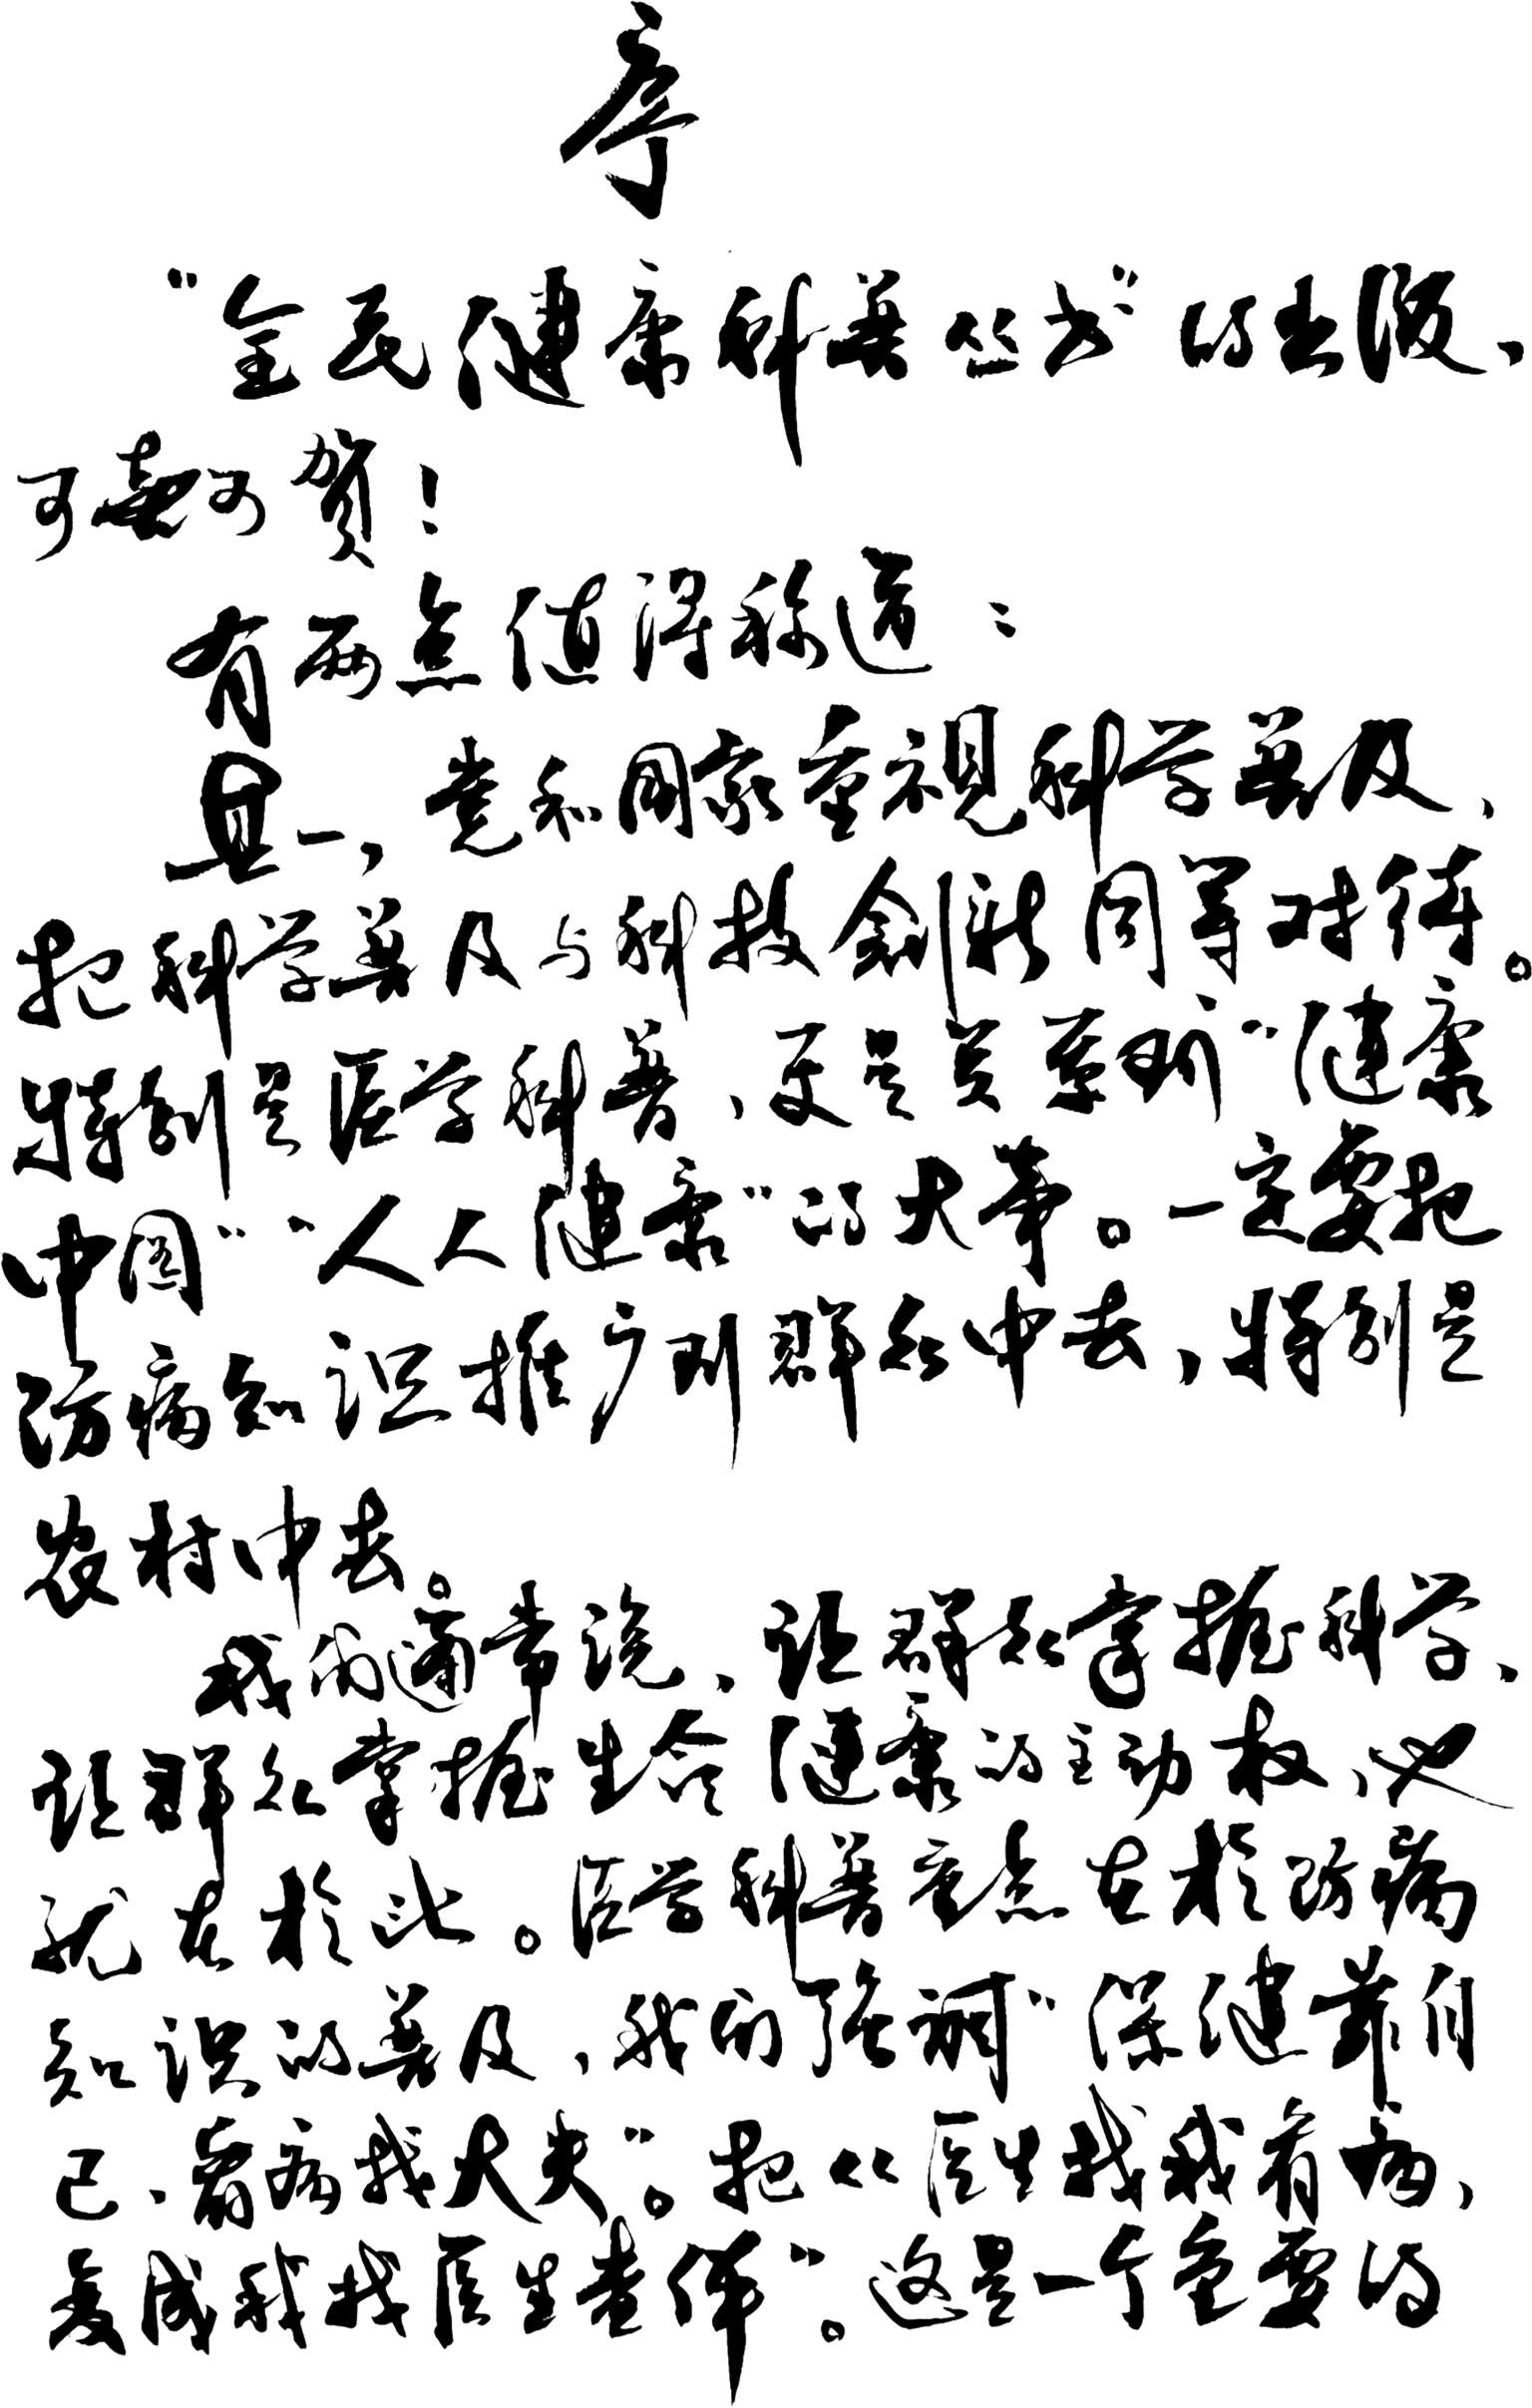 序
“全民健康科普丛书”的出版，
可喜可贺！
有两点值得称道：
其一，党和国家重视科学普及，
把科学普及与科技创新同等对待。
特别是医学科普，更是关系到“健康
中国”“人人健康”的大事。一定要把
防病知识推广到群众中去，特别是
农村中去。
我们通常说，让群众掌握科学，
让群众掌握生命健康的主动权，也
就在于此。医学科普重点在于防病
知识的普及，我们强调“保健靠自
己，看病找大夫”。把“医生找我看病，
变成我找医生查体”。这是一个重要的